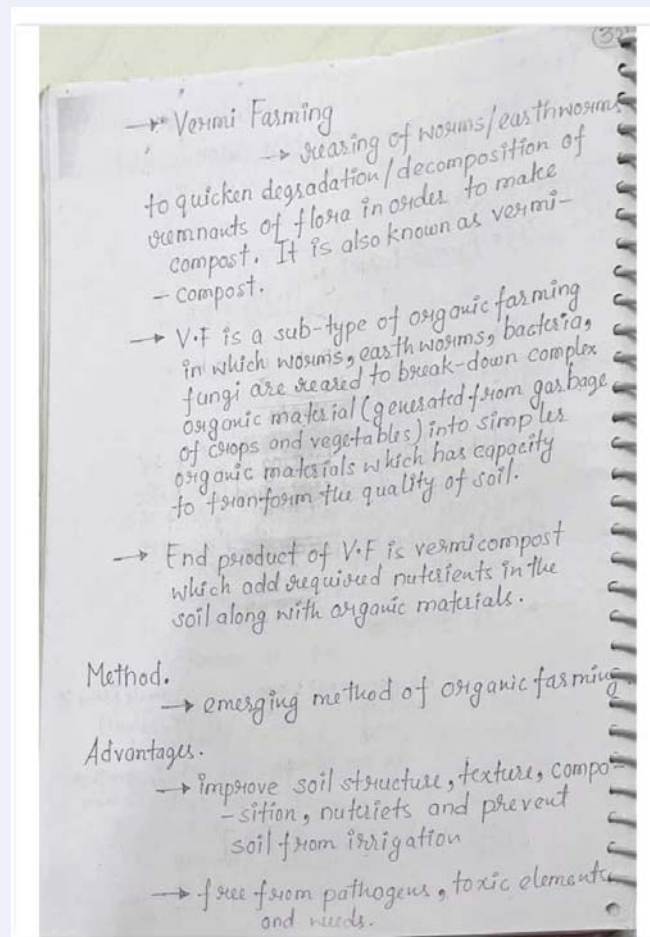 → Vermi Farming
→ rearing of worms/earthworms
to quicken degradation/decomposition of
remnants of flora in order to make
compost. It is also known as vermi-
- compost.
→ V.F is a sub-type of organic farming
in which worms, earthworms, bacteria,
fungi are reared to break-down complex
organic material (generated from garbage
of crops and vegetables) into simpler
organic materials which has capacity
to tranform the quality of soil.
→ End product of V.F is vermicompost
which add required nutrients in the
soil along with organic materials.
Method.
→ emerging method of organic farming.
Advantages.
→ improve soil structure, texture, compo-
-sition, nutriets and prevent
soil from irrigation
→ free from pathogens, toxic elements
and